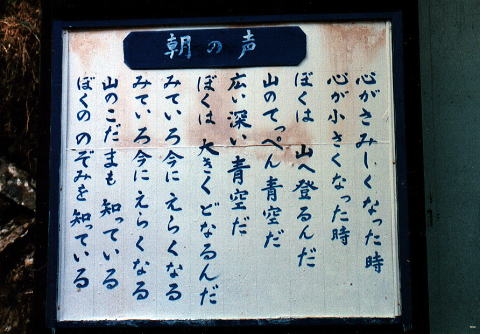 朝の声
心がさみしくなった時
心が小さくなった時
ぼくは 山へ登るんだ
山のてっぺん青空だ
広い深い青空だ
ぼくは 大きくどなるんだ
みていろ今に えらくなる
みていろ今に えらくなる
山のこだまも 知っている
ぼくの のぞみを 知っている